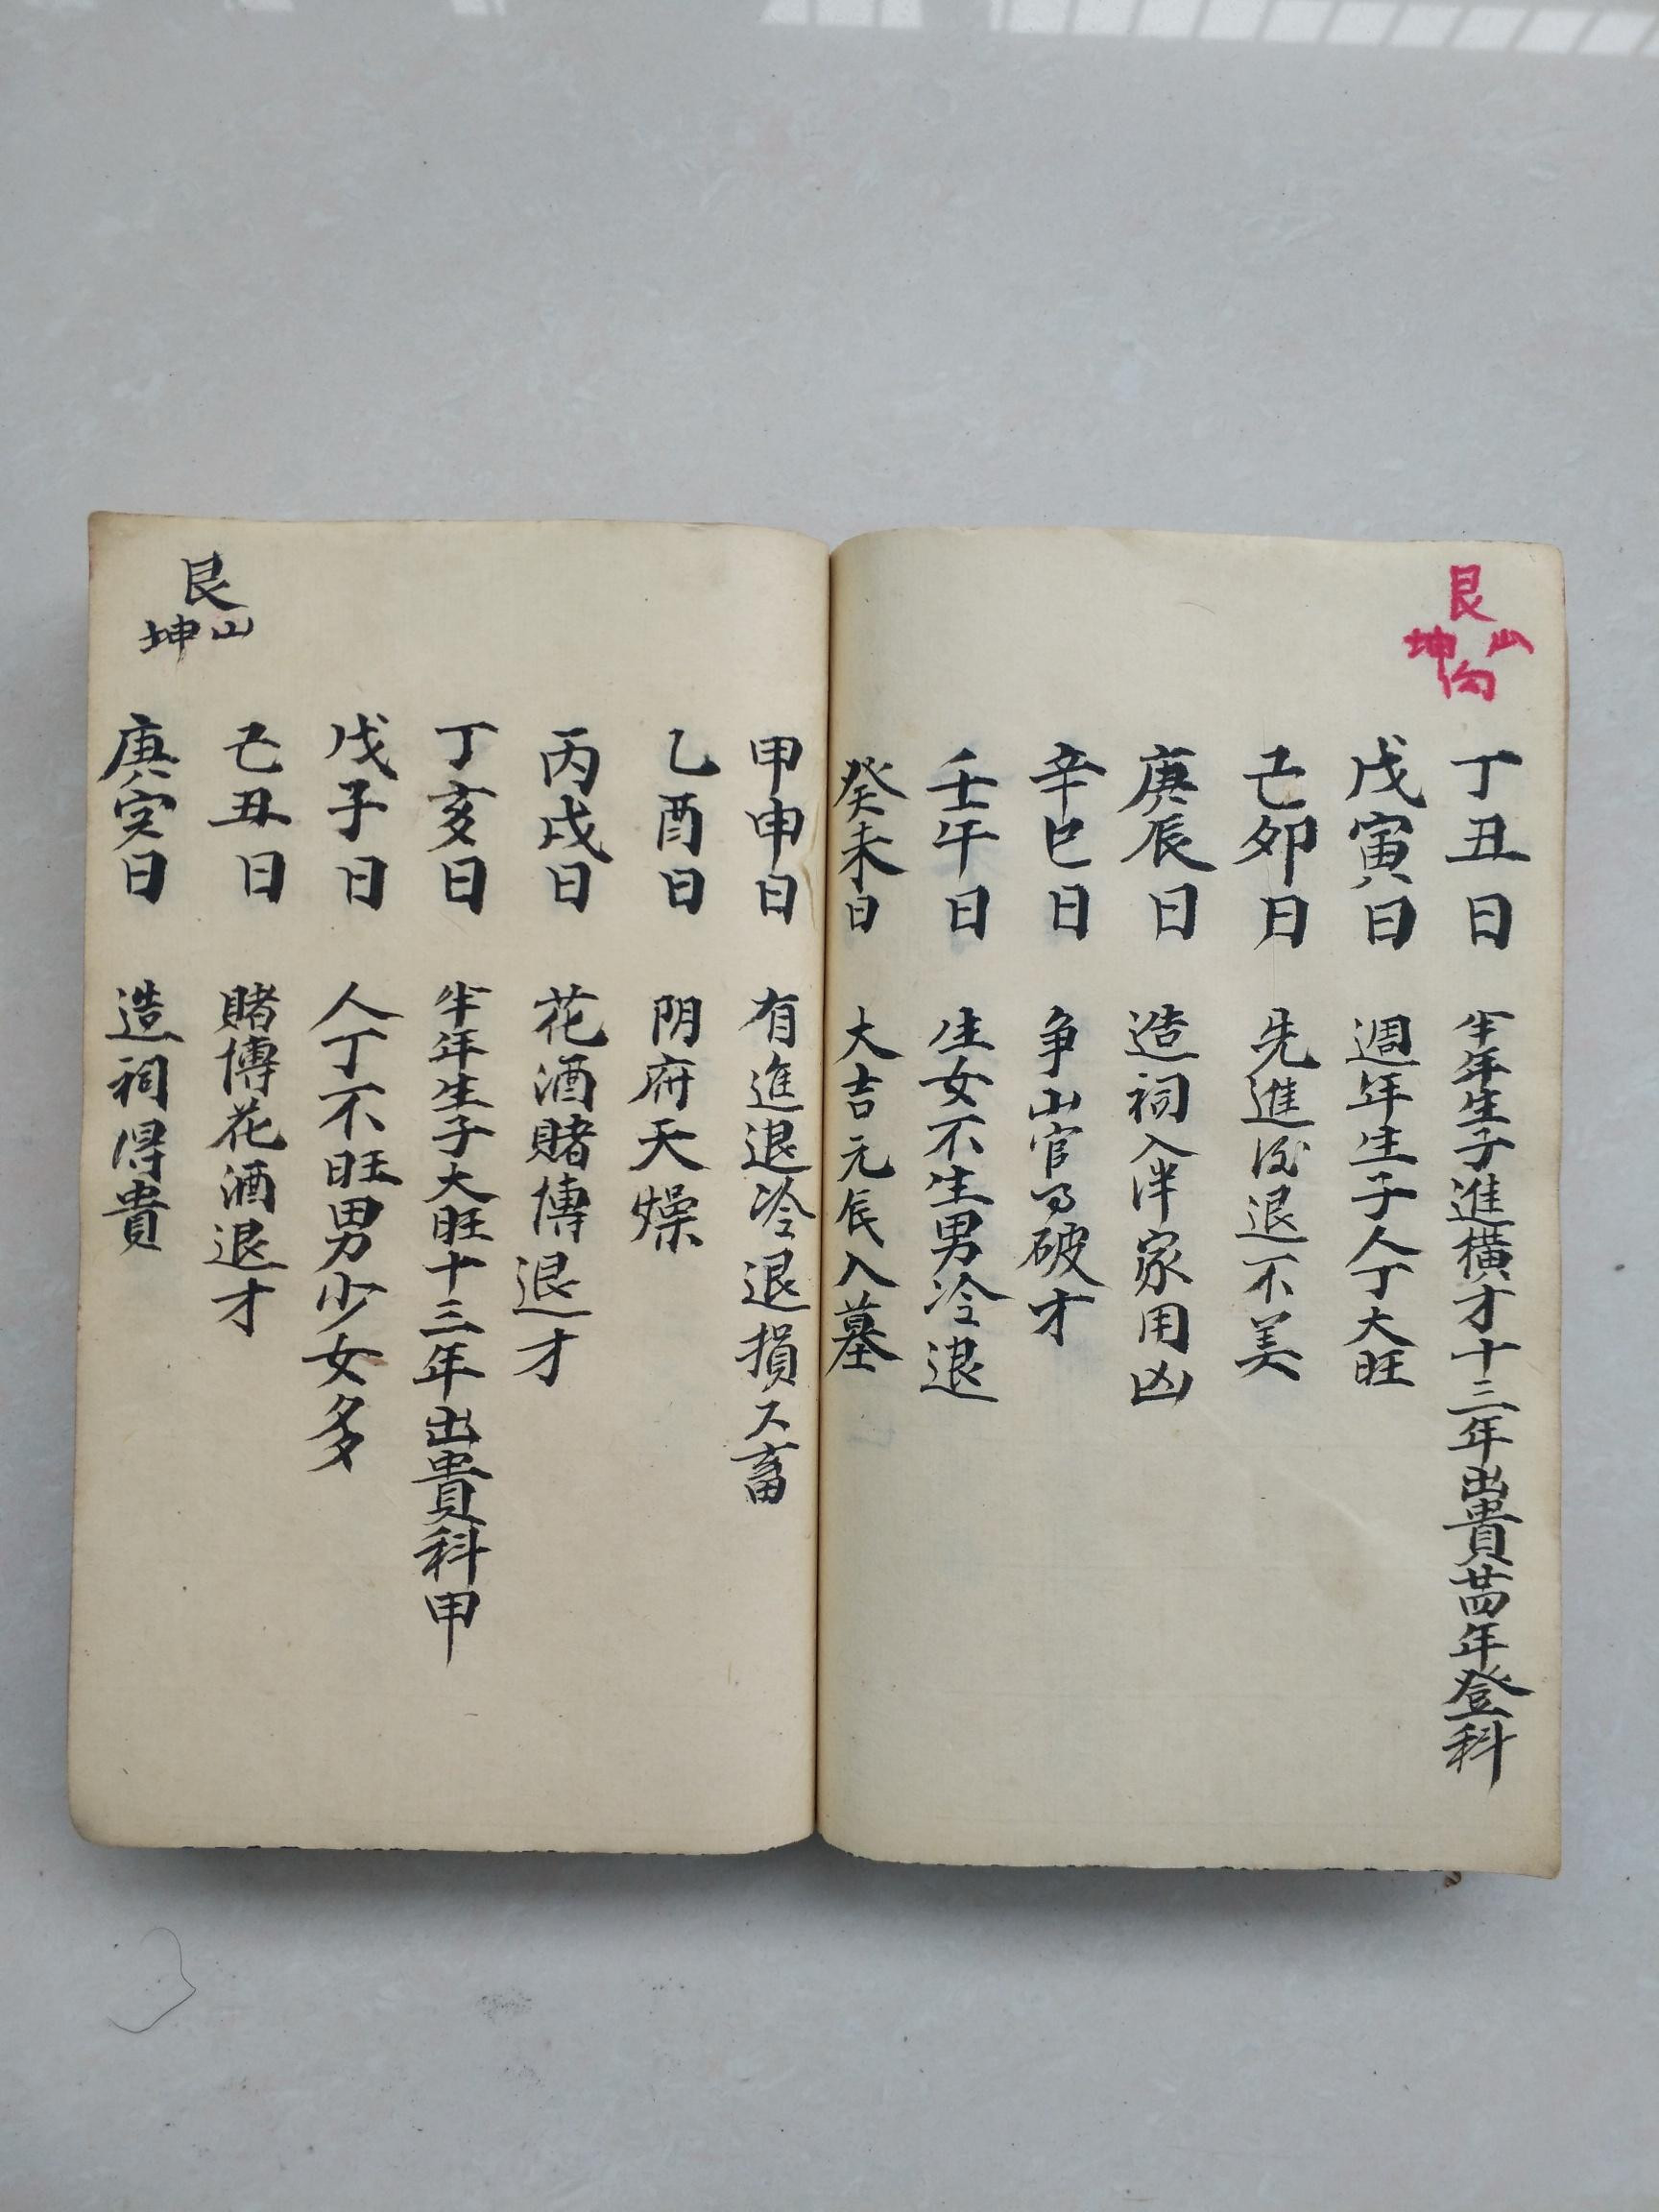 艮山
坤向
丁丑日 半年生子進橫才十三年出貴廿四年登科
戊寅日 週年生子人丁大旺
己卯日 先進後退不美
庚辰日 造祠入泮家用凶
辛巳日 爭山官司破才
壬午日 生女不生男冷退
癸未日 大吉元辰入墓
艮山
坤
甲申日 有進退冷退損六畜
乙酉日 阴府天燥
丙戌日 花酒賭博退才
丁亥日 半年生子大旺十三年出貴科甲
戊子日 人丁不旺男少女多
己丑日 賭博花酒退才
庚寅日 造祠得貴